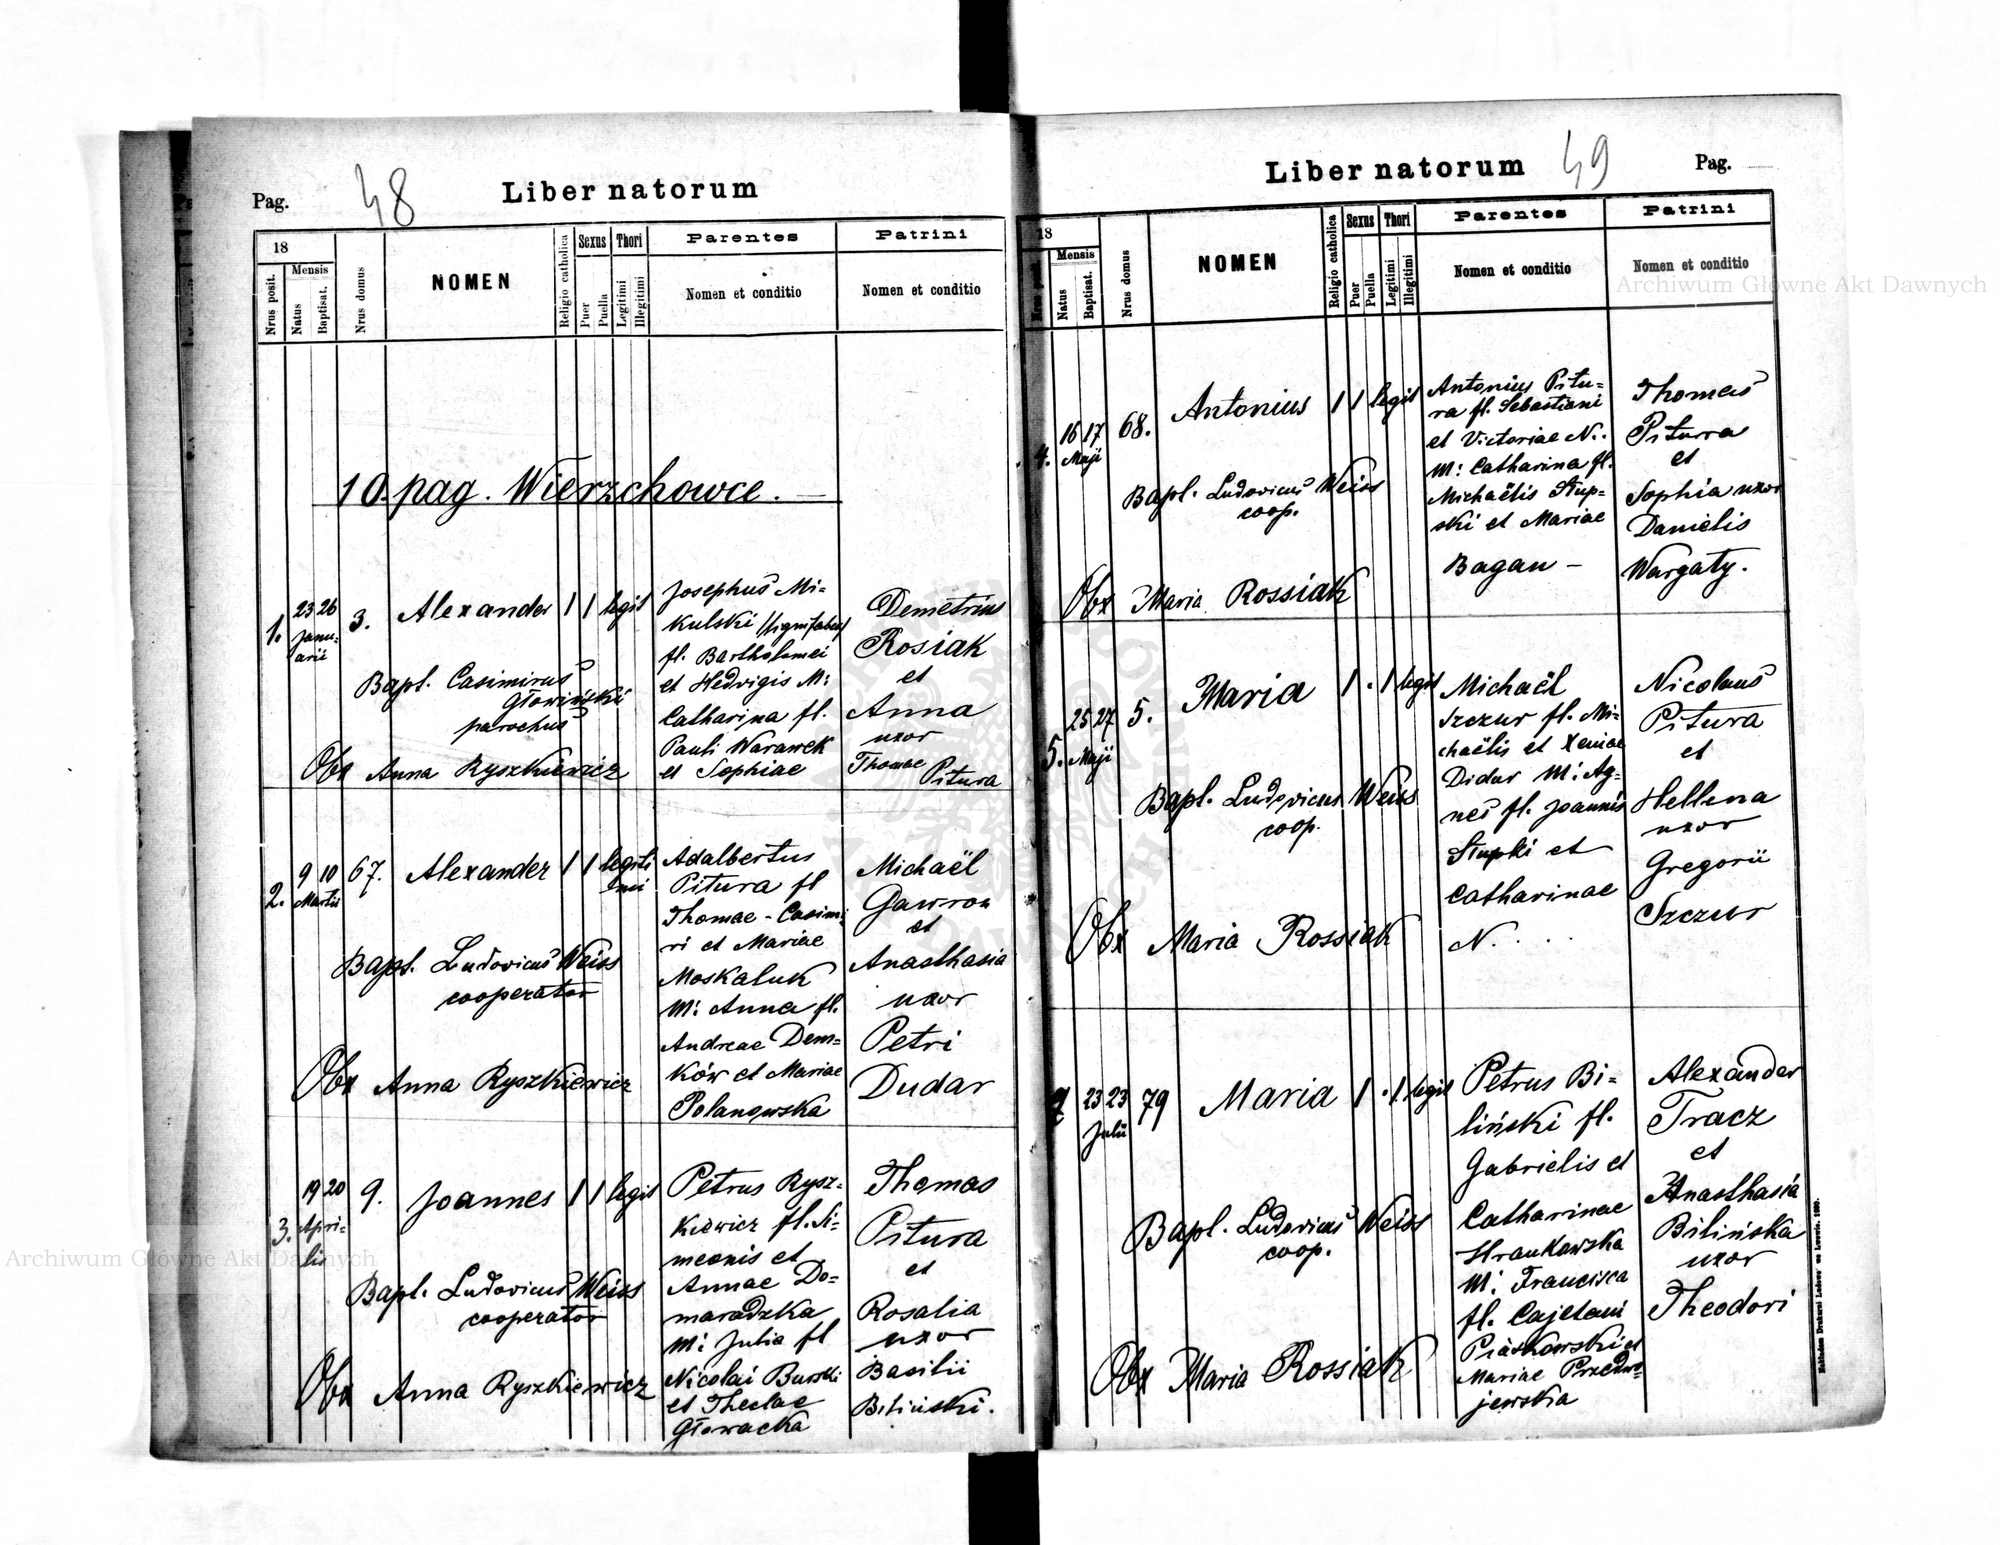 Pag.
48
Liber natorum
18
Mensis
Nrus posit.
Natus
Baptisat.
Nrus domus
NOMEN
Religio catholica
Sexus
Puer
Puella
Thori
Legitimi
Illegitimi
Parentes
Nomen et conditio
Patrini
Nomen et conditio
10. pag. Wierzchowce.
1.
23 26
Janu-
arii
3.
Alexander
1 1 legit
Bapt. Casimirus
Głowiński
parochus
Obx Anna Ryszkiewicz
Josephus Mi-
kulski /lignifaber/
fl. Bartholomei
et Hedvigis M:
Catharina fl.
Pauli Warawek
et Sophiae
Demetrius
Rosiak
et
Anna
uxor
Thomae
Pitura
2.
9 10
Martii
67.
Alexander
1 1 legiti
mi
Bapt. Ludovicus Weiss
cooperator
Obx Anna Ryszkiewicz
Adalbertus
Pitura fl
Thomae-Casimi-
ri et Mariae
Moskaluk
M: Anna fl.
Andreae Dem-
ków et Mariae
Polanowska
Michaël
Gawron
et
Anasthasia
uxor
Petri
Dudar
3.
19 20
Apri-
lis
9.
Joannes
1 1 legit
Bapt. Ludovicus Weiss
cooperator
Obx Anna Ryszkiewicz
Petrus Rysz-
kiewicz fl. Si-
meonis et
Annae Do-
maradzka
M: Julia fl
Nicolai Burski
et Theclae
Głowacka
Thomas
Pitura
et
Rosalia
uxor
Basilii
Biliński.
Liber natorum
49
Pag.
18
Mensis
Natus
Baptisat.
Nrus domus
NOMEN
Religio catholica
Sexus
Puer
Puella
Thori
Legitimi
Illegitimi
Parentes
Nomen et conditio
Patrini
Nomen et conditio
4.
16 17
Maji
68.
Antonius
1 1 legit
Bapt. Ludovicus Weiss
coop.
Obx Maria Rossiak
Antonius Pitu-
ra fl. Sebastiani
et Victoriae N.
M: Catharina fl.
Michaëlis Stup-
ski et Mariae
Bagan -
Thomas
Pitura
et
Sophia uxor
Danielis
Wargaty.
5.
25 27
Maji
5.
Maria
1 . 1 legit
Bapt. Ludovicus Weiss
coop.
Obx Maria Rossiak
Michaël
Szczur fl. Mi-
chaëlis et Xeniae
Didur M: Ag-
nes fl. Joannis
Stupki et
Catharinae
N. . . .
Nicolaus
Pitura
et
Hellena
uxor
Gregorii
Szczur
23 23
Julii
79
Maria
1 . 1 legit
Bapt. Ludovicus Weiss
coop.
Obx Maria Rossiak
Petrus Bi-
liński fl.
Gabrielis et
Catharinae
Hrankowska
M: Francisca
fl. Cajetani
Piaskowski et
Mariae
jewska
Alexander
Tracz
et
Anasthasia
Bilińska
uxor
Theodori
Nakładem Drukarni Ludowej we Lwowie.
Archiwum Główne Akt Dawnych
Archiwum Główne Akt Dawnych